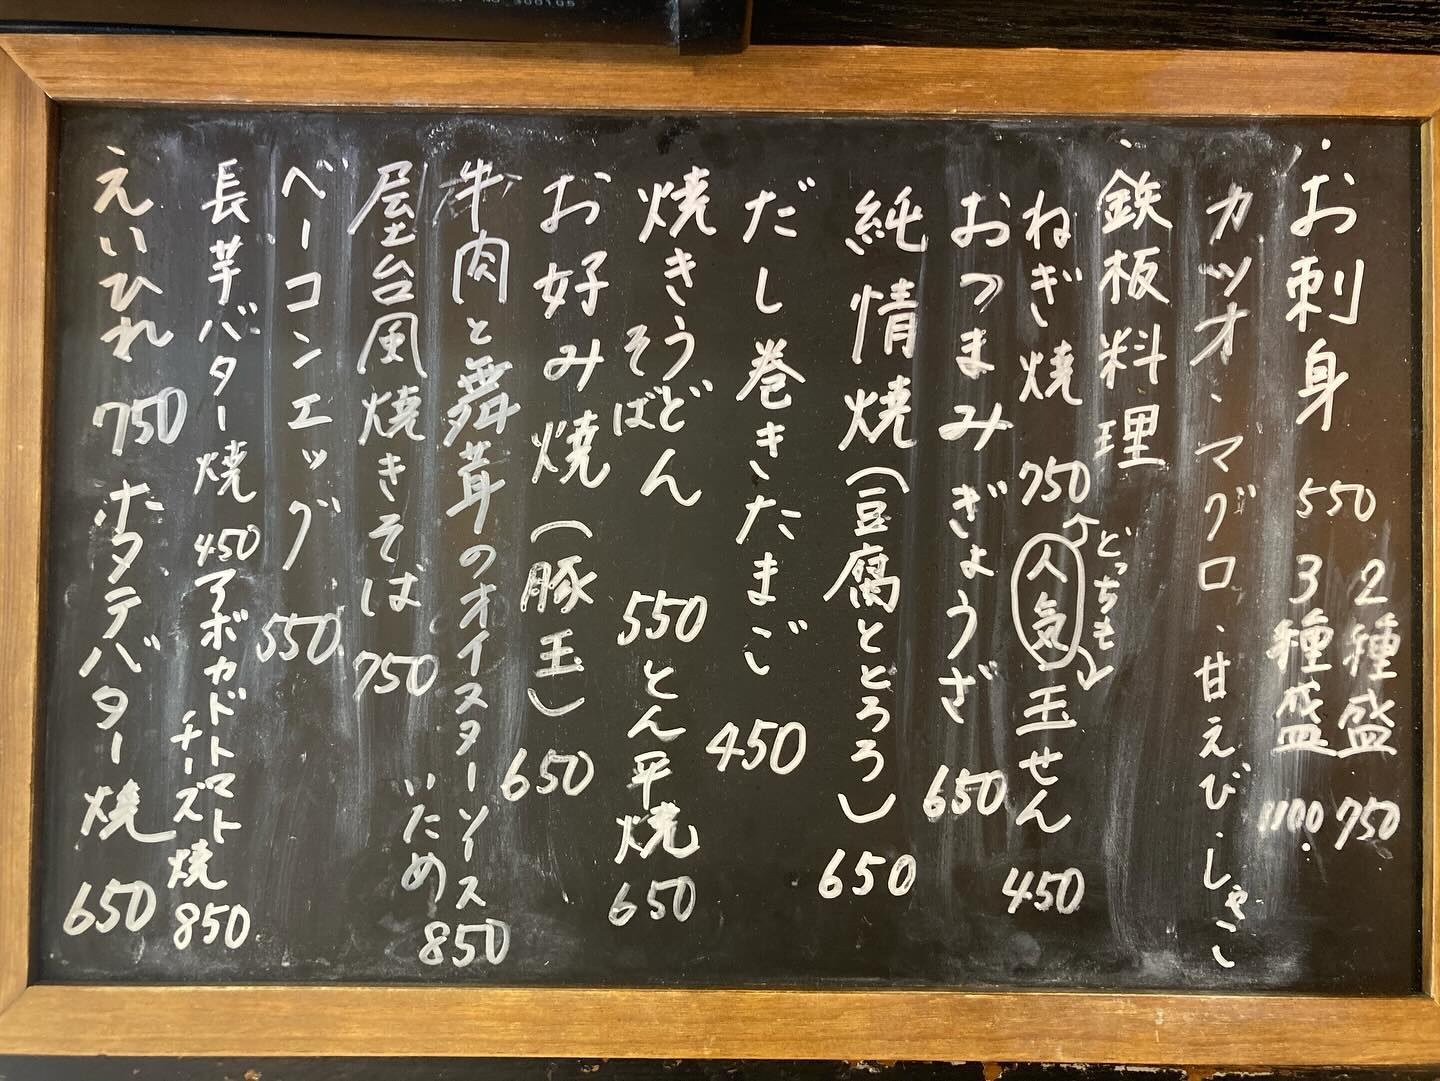 ・お刺身 550 2種盛 750
3種盛 1100.
カツオ・マグロ・甘えび・しゃこ
・鉄板料理
ねぎ焼 750 人気 玉せん 450
どっちも
おつまみぎょうざ 650
純情焼(豆腐ととろろ) 650
だし巻きたまご 450
焼きうどん 550 とん平焼 650
そば
お好み焼(豚玉) 650
牛肉と舞茸のオイスターソース
いため 850
屋台風焼きそば 750
ベーコンエッグ 550
長芋バター焼 450 アボカドトマト
チーズ焼 850
えいひれ 750 ホタテバター焼 650